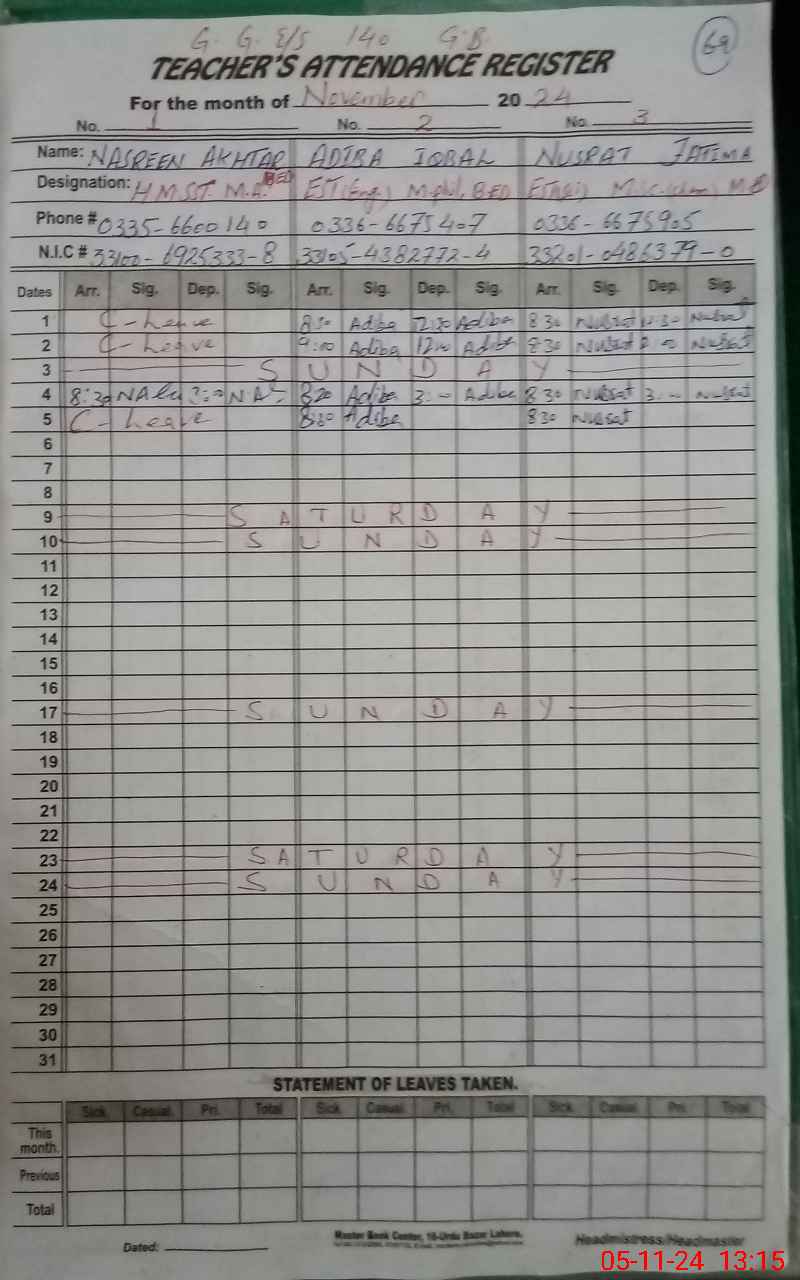 G. G. E/S 140 G.B 69
TEACHER'S ATTENDANCE REGISTER
For the month of November 2024
No. 1 No. 2 No. 3
Name: NASREEN AKHTAR ADIBA IQBAL NUSRAT FATIMA
Designation: H M SST. M.A. BED EST(Eng) M.phil, B.ED
Phone # 0335-6600140 0336-6675407 0336-6675905
N.I.C # 33100-6925333-8 33105-4382772-4 33201-0486379-0
Dates Arr. Sig. Dep. Sig. Arr. Sig. Dep. Sig. Arr. Sig. Dep. Sig.
1 C-Leave 8:30 Adiba 12:30 Adiba 8 30 Nusrat 12:30 Nusrat
2 C-Leave 9:00 Adiba 12:00 Adiba 8 30 Nusrat Nusrat
3 S U N D A Y
4 8:30 Adiba 3:- Adiba 8 30 Nusrat 3:- Nusrat
5 C-Leave 8:30 Adiba 8 30 Nusrat
6
7
8
9 S A T U R D A Y
10 S U N D A Y
11
12
13
14
15
16
17 S U N D A Y
18
19
20
21
22
23 S A T U R D A Y
24 S U N D A Y
25
26
27
28
29
30
31
STATEMENT OF LEAVES TAKEN.
Sick Casual Pri. Total Sick Casual Pri. Total Sick Casual Pri. Total
This month.
Previous
Total
Dated: Master Book Center, 16-Urdu Bazar Lahore. Headmistress/Headmaster
05-11-24 13:15